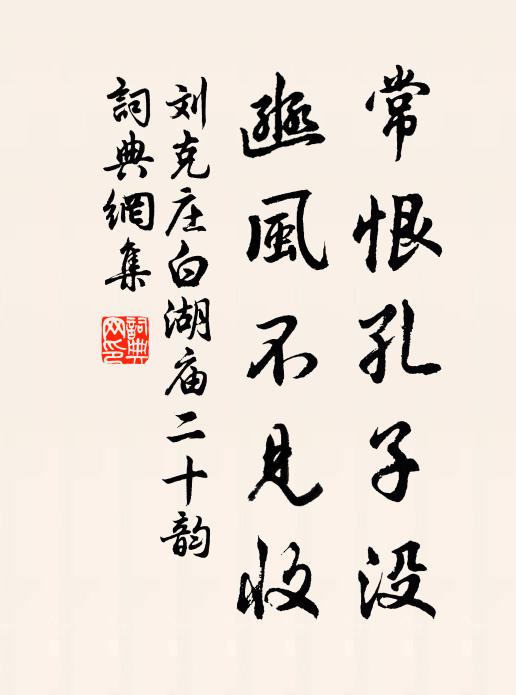 常恨孔子没
豳風不見收
刘克庄白湖庙二十韵
詞典網集
詞典网印